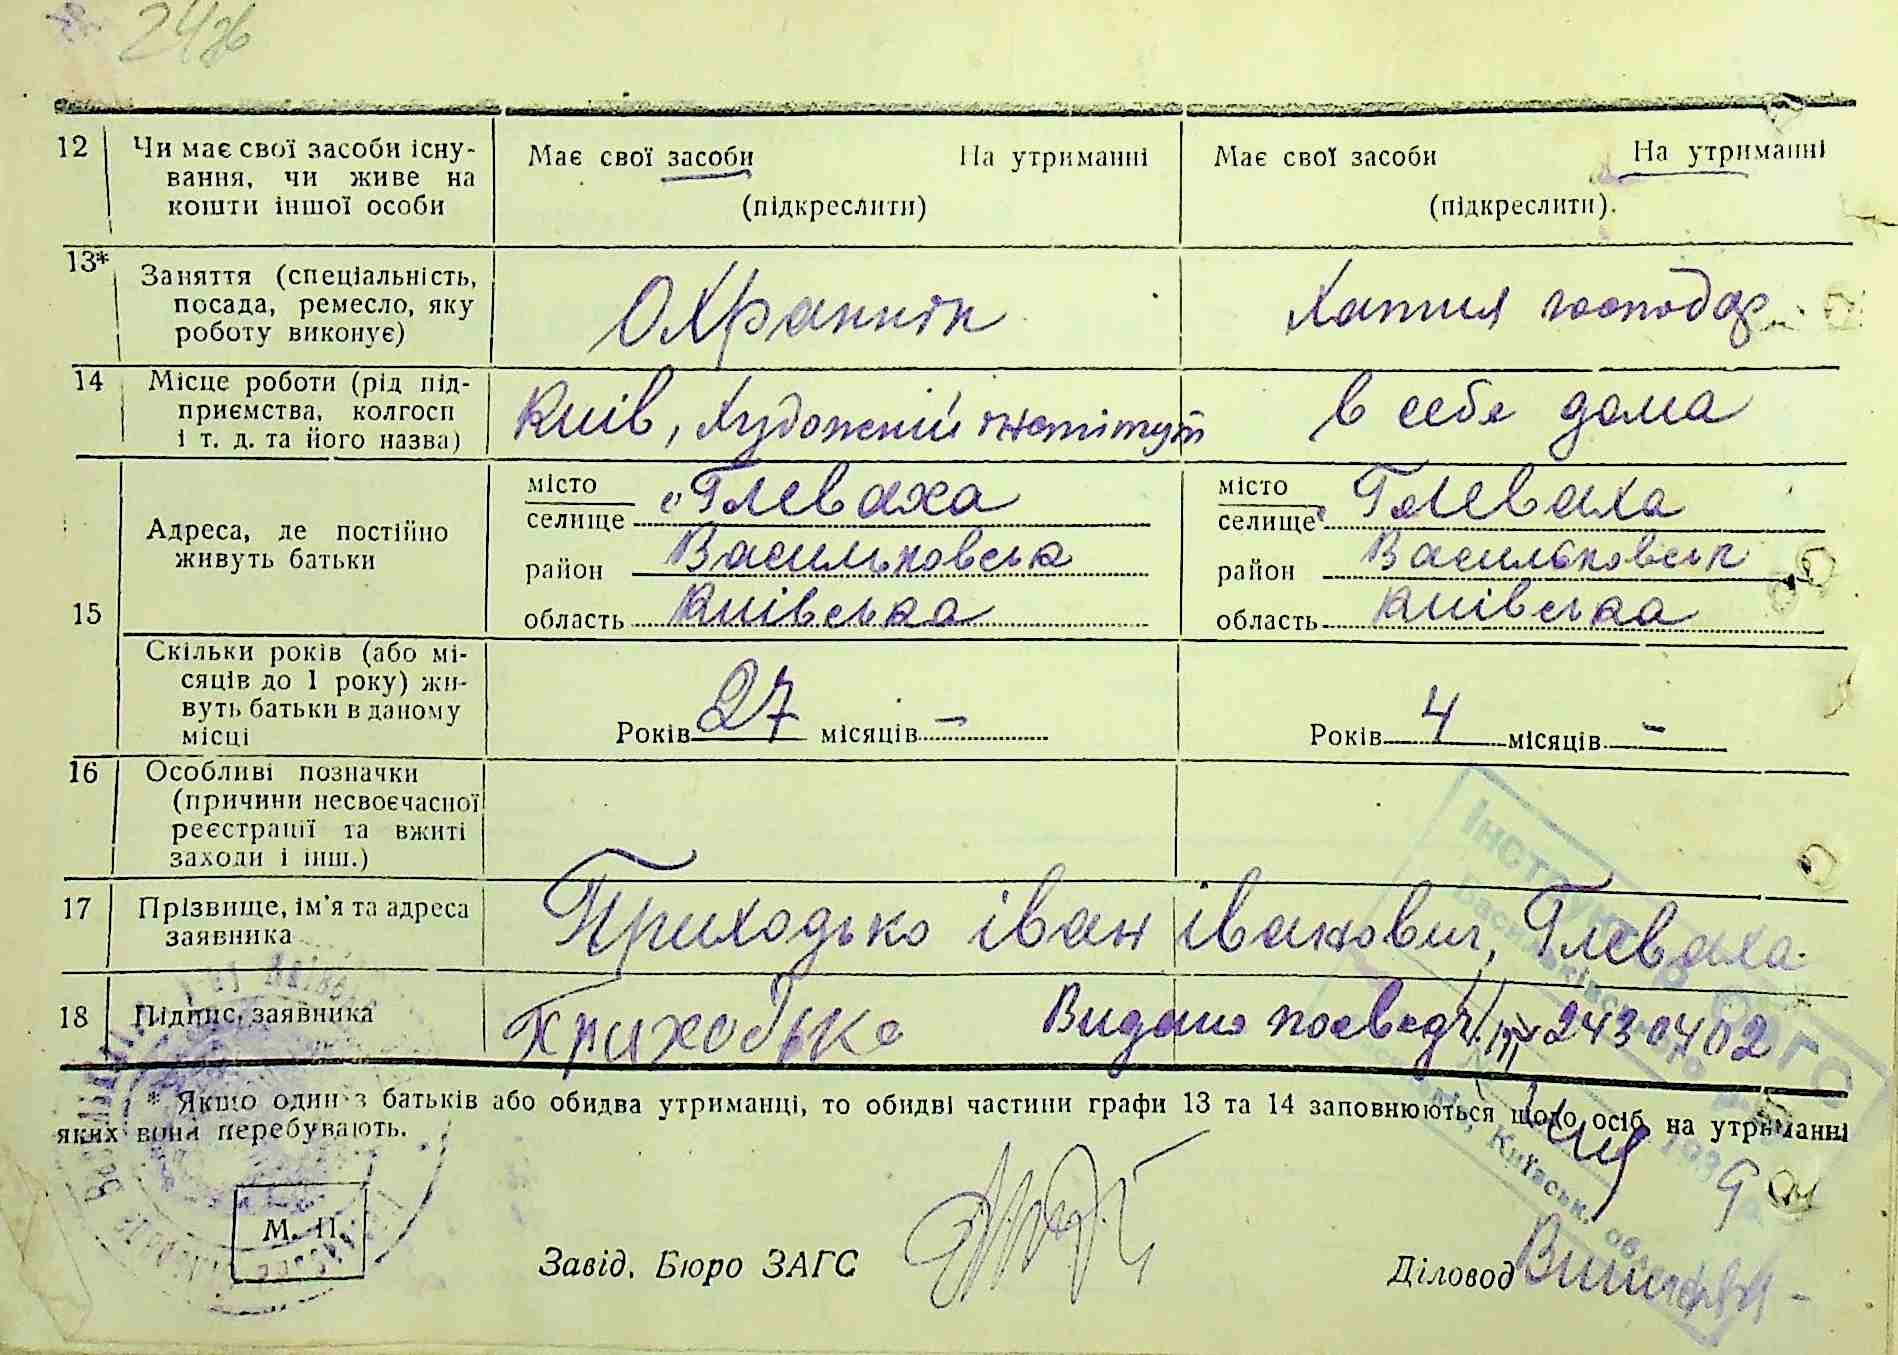 24зв
12 Чи має свої засоби існу- Має свої засоби На утриманні Має свої засоби На утриманні
вання, чи живе на
кошти іншої особи (підкреслити) (підкреслити).
13* Заняття (спеціальність, Охраннік Хатня господар
посада, ремесло, яку
роботу виконує)
14 Місце роботи (рід під- Київ, Художній інстітут в себе дома
приємства, колгосп
і т. д. та його назва)
15 Адреса, де постійно живуть батьки
місто Глеваха місто Глеваха
селище селище
район Васильковськ район Васильковськ
область Київська область Київська
Скільки років (або мі-
сяців до 1 року) жи-
вуть батьки в даному
місці Років 27 місяців – Років 4 місяців –
16 Особливі позначки
(причини несвоєчасної
реєстрації та вжиті
заходи і інш.)
17 Прізвище, ім'я та адреса Приходько іван іванович, Глеваха
заявника
18 Підпис, заявника Приходько Видано посведч. 2430402
* Якщо один з батьків або обидва утриманці, то обидві частини графи 13 та 14 заповнюються щодо осіб, на утриманні
яких вони перебувають.
М. П.
Завід. Бюро ЗАГС Діловод
Інспу НКВД ЗАГС
Васильківського р-
Київськ. обл.